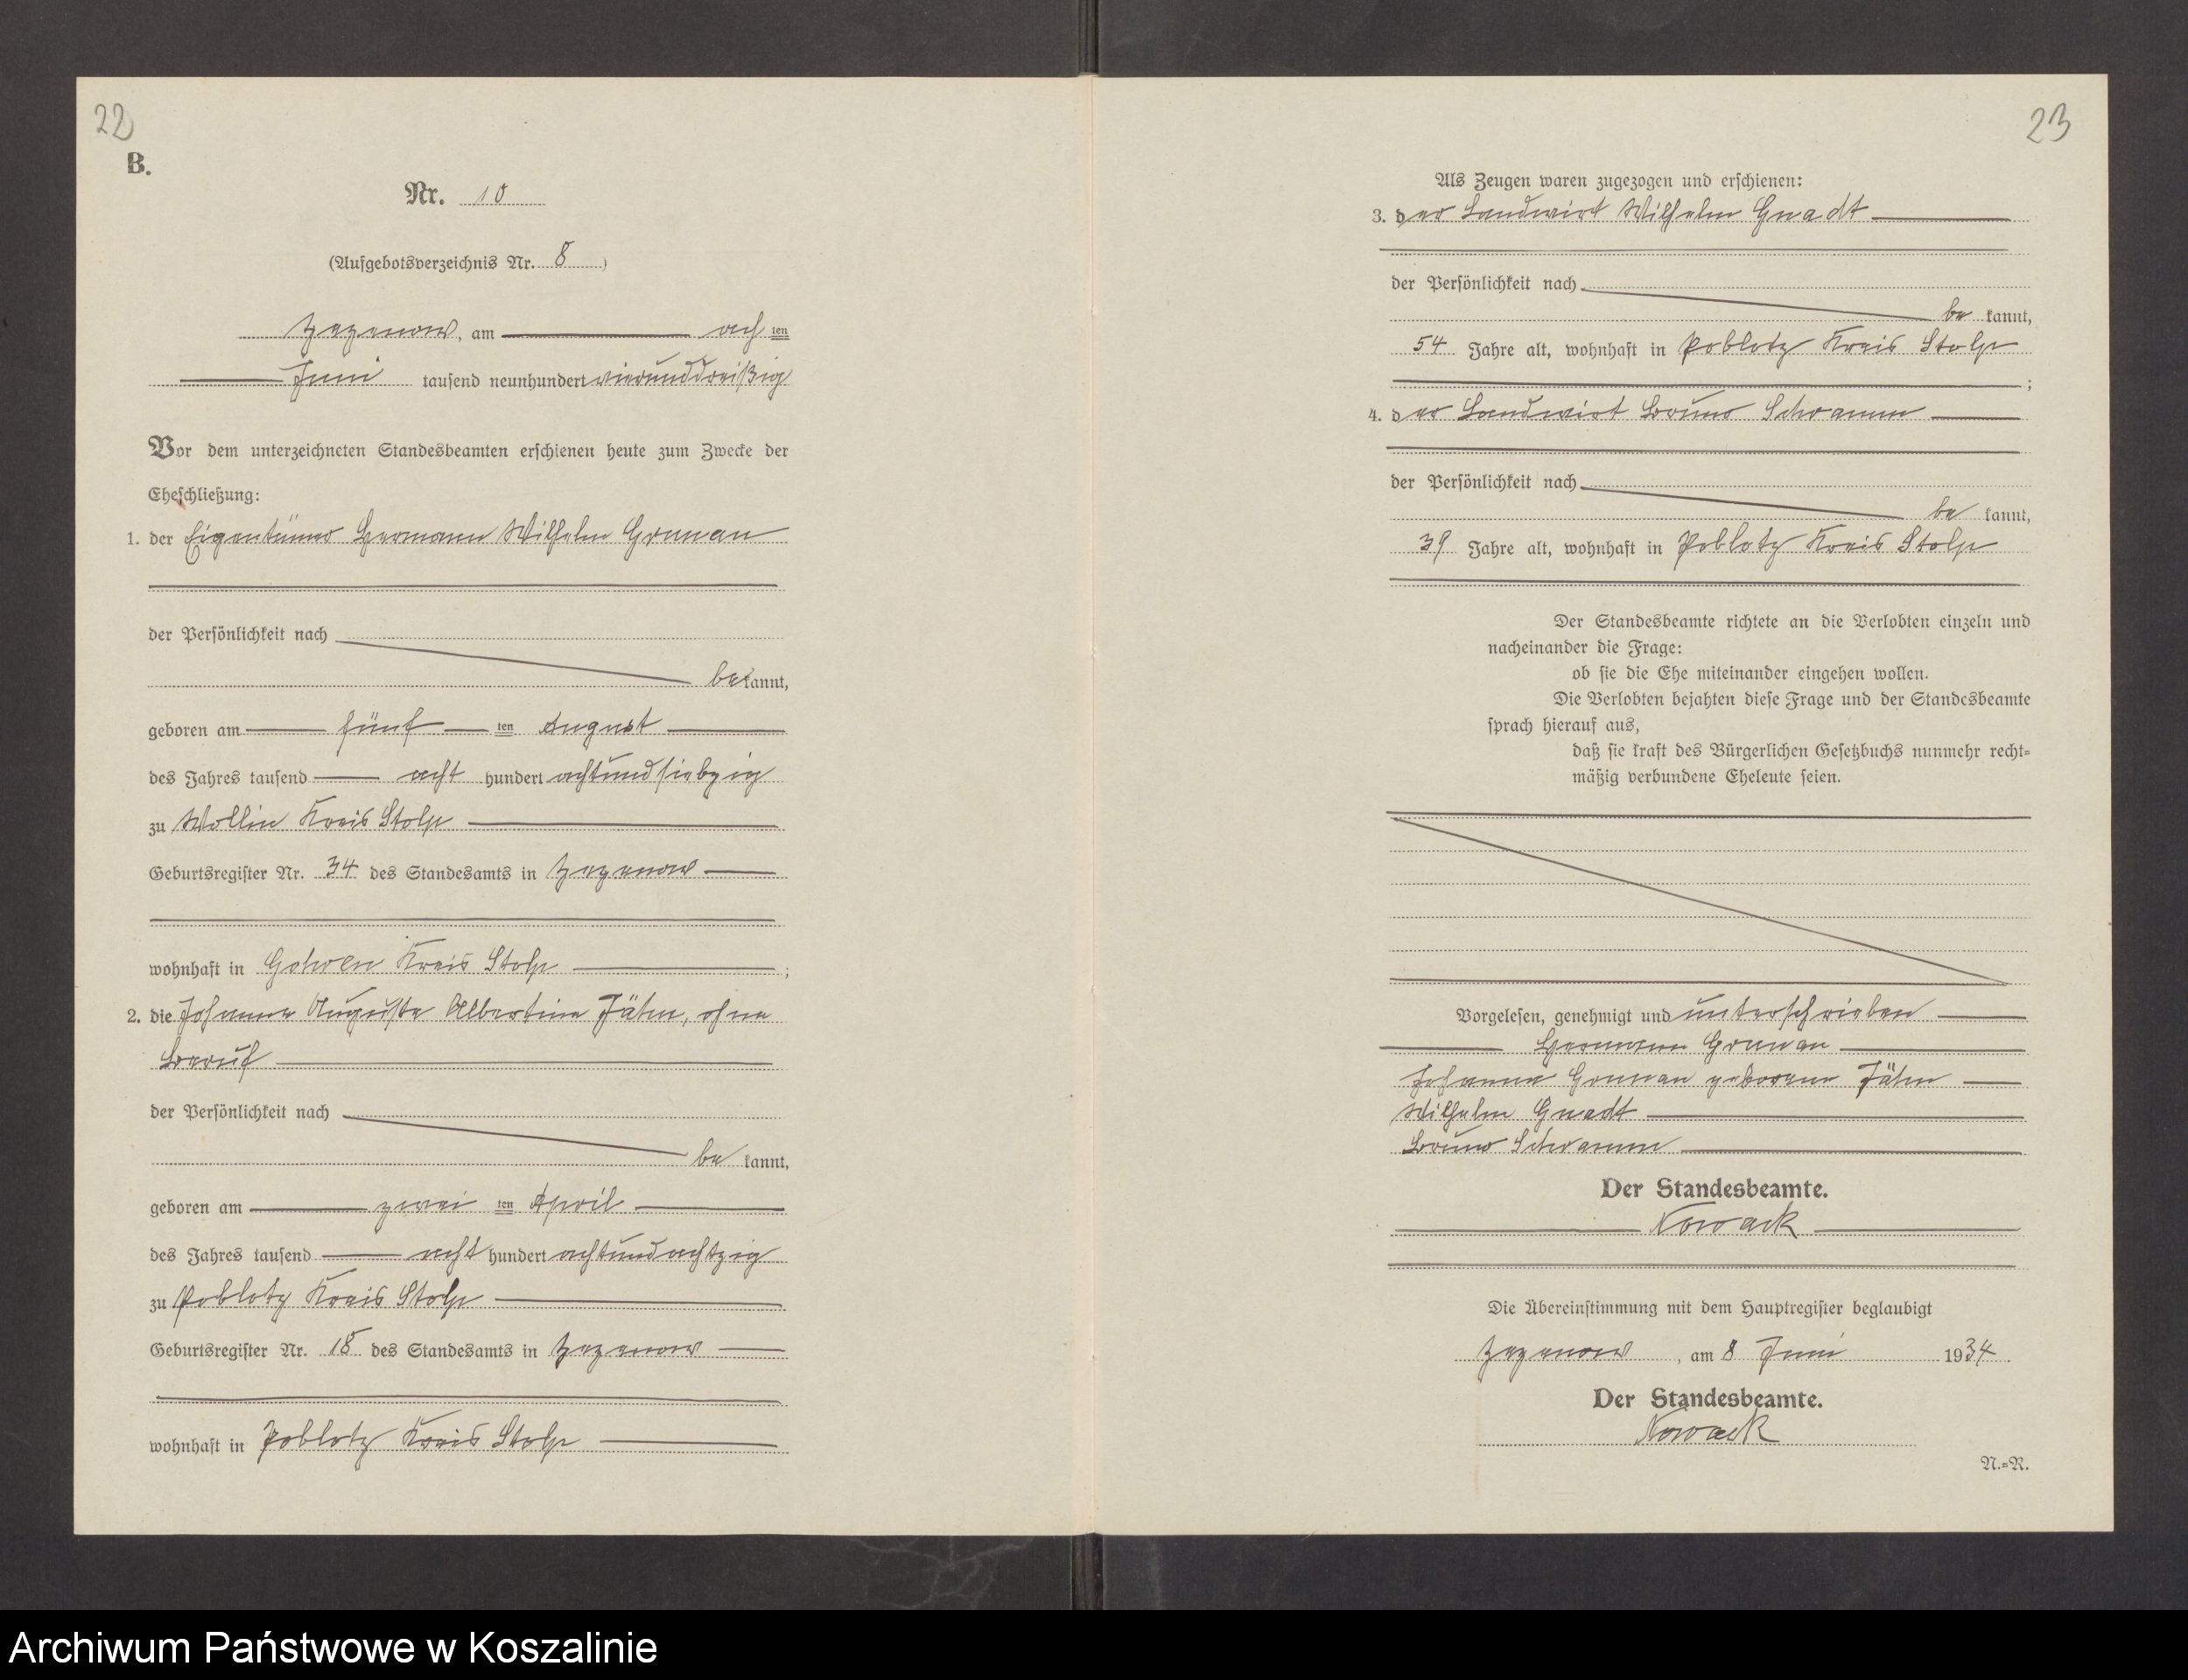 22
B.
Nr. 10
(Aufgebotsverzeichnis Nr. 8)
Zezenow, am ach ten
Juni tausend neunhundert vierunddreißig
Vor dem unterzeichneten Standesbeamten erschienen heute zum Zwecke der
Eheschließung:
1. der Eigentümer Hermann Wilhelm
der Persönlichkeit nach
be kannt,
geboren am fünf ten August
des Jahres tausend acht hundert achtundsiebzig
zu Wollin Kreis Stolp
Geburtsregister Nr. 34 des Standesamts in Zezenow
wohnhaft in Gohren Kreis Stolp ;
2. die Johanna Auguste Albertine Jähn, ohne
Beruf
der Persönlichkeit nach
be kannt,
geboren am zwei ten April
des Jahres tausend acht hundert achtundachtzig
zu Poblotz Kreis Stolp
Geburtsregister Nr. 18 des Standesamts in Zezenow
wohnhaft in Poblotz Kreis Stolp
23
Als Zeugen waren zugezogen und erschienen:
3. der Landwirt Wilhelm Gnadt
der Persönlichkeit nach
be kannt,
54 Jahre alt, wohnhaft in Poblotz Kreis Stolp
;
4. der Landwirt Bruno Schramm
der Persönlichkeit nach
be kannt,
39 Jahre alt, wohnhaft in Poblotz Kreis Stolp
Der Standesbeamte richtete an die Verlobten einzeln und
nacheinander die Frage:
ob sie die Ehe miteinander eingehen wollen.
Die Verlobten bejahten diese Frage und der Standesbeamte
sprach hierauf aus,
daß sie kraft des Bürgerlichen Gesetzbuchs nunmehr recht-
mäßig verbundene Eheleute seien.
Vorgelesen, genehmigt und unterschrieben
Hermann
Johanna geborene Jähn
Wilhelm Gnadt
Bruno Schramm
Der Standesbeamte.
Nowack
Die Übereinstimmung mit dem Hauptregister beglaubigt
Zezenow, am 8 Juni 1934.
Der Standesbeamte.
Nowack
N.-R.
Archiwum Państwowe w Koszalinie